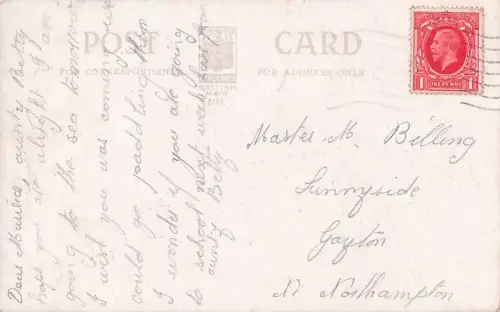 POST CARD
FOR CORRESPONDENCE
FOR ADDRESS ONLY
BRITISH
MADE
1 ONE PENNY 1
Master M. Billing
Sunnyside
Gayton
Nr Northampton
Dear Maurice, aunty Betty
hope you are alright I am
going to the sea tomorrow
I wish you was coming we
could go paddling then
I wonder if you are going
to school next week love from
aunty Betty